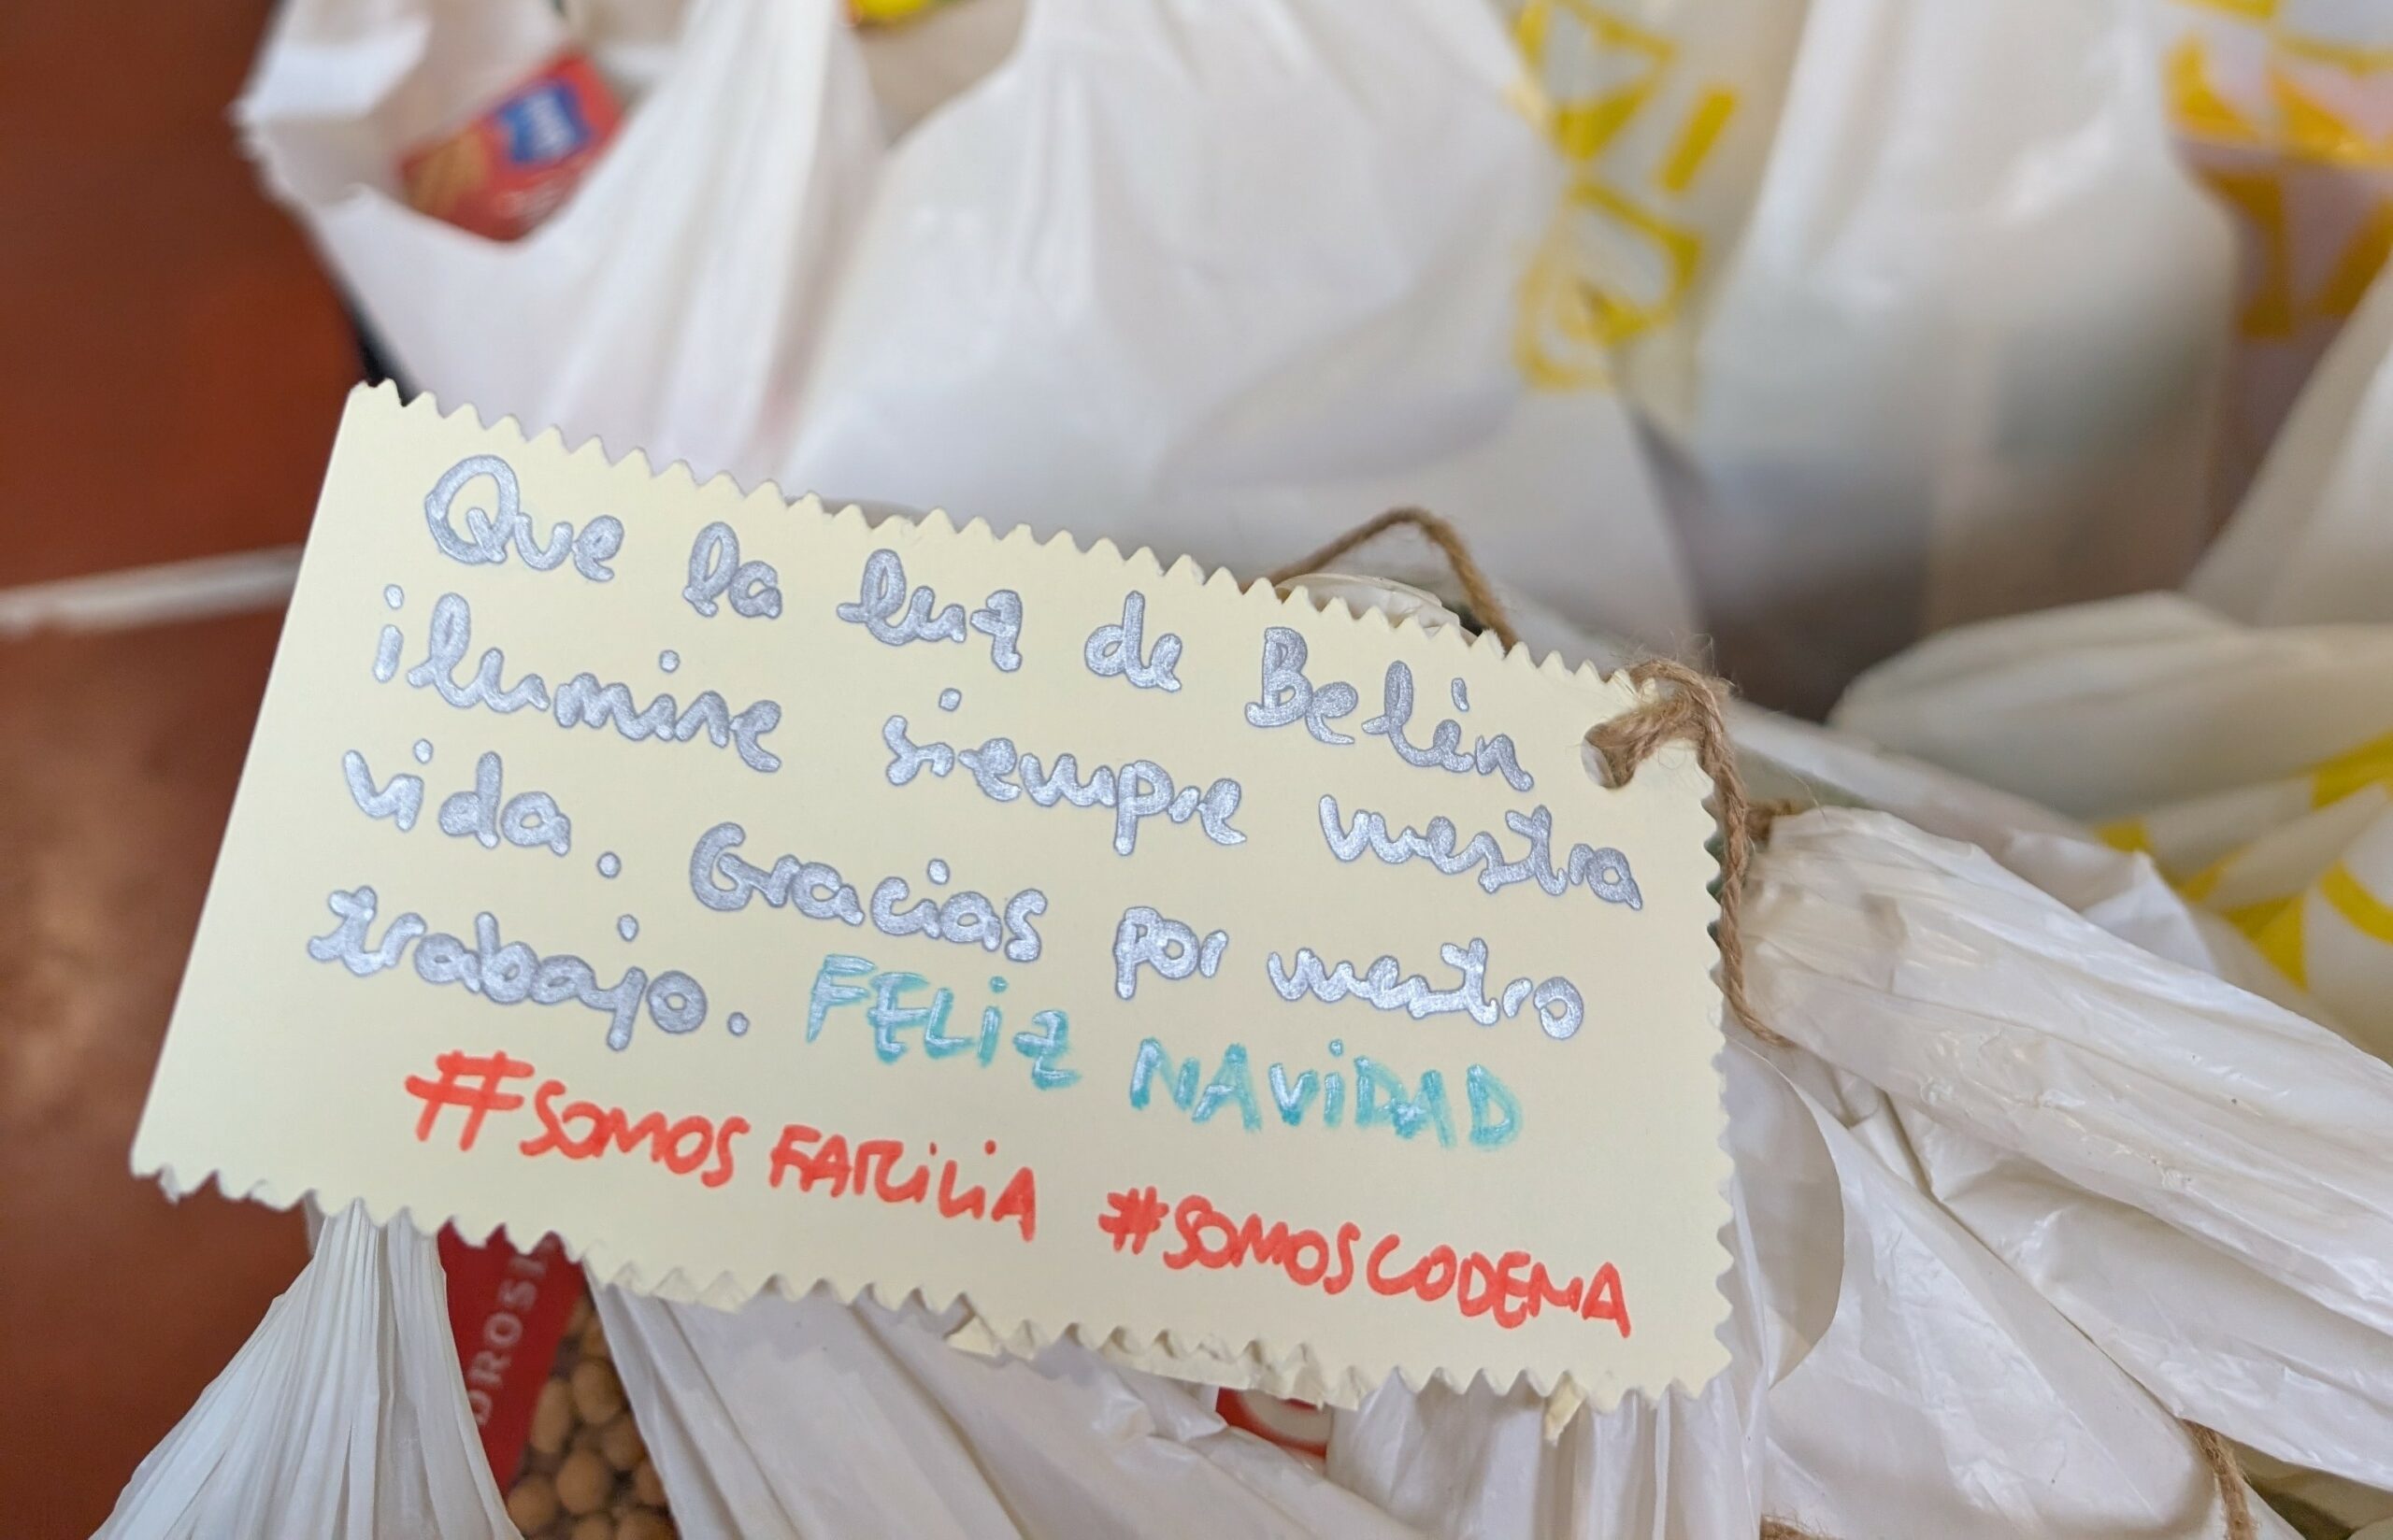 Que la luz de Belén
ilumine siempre vuestra
vida. Gracias por vuestro
trabajo. FELiz NAViDAD
#SOMOS FAMiLiA #SOMOSCODEMA